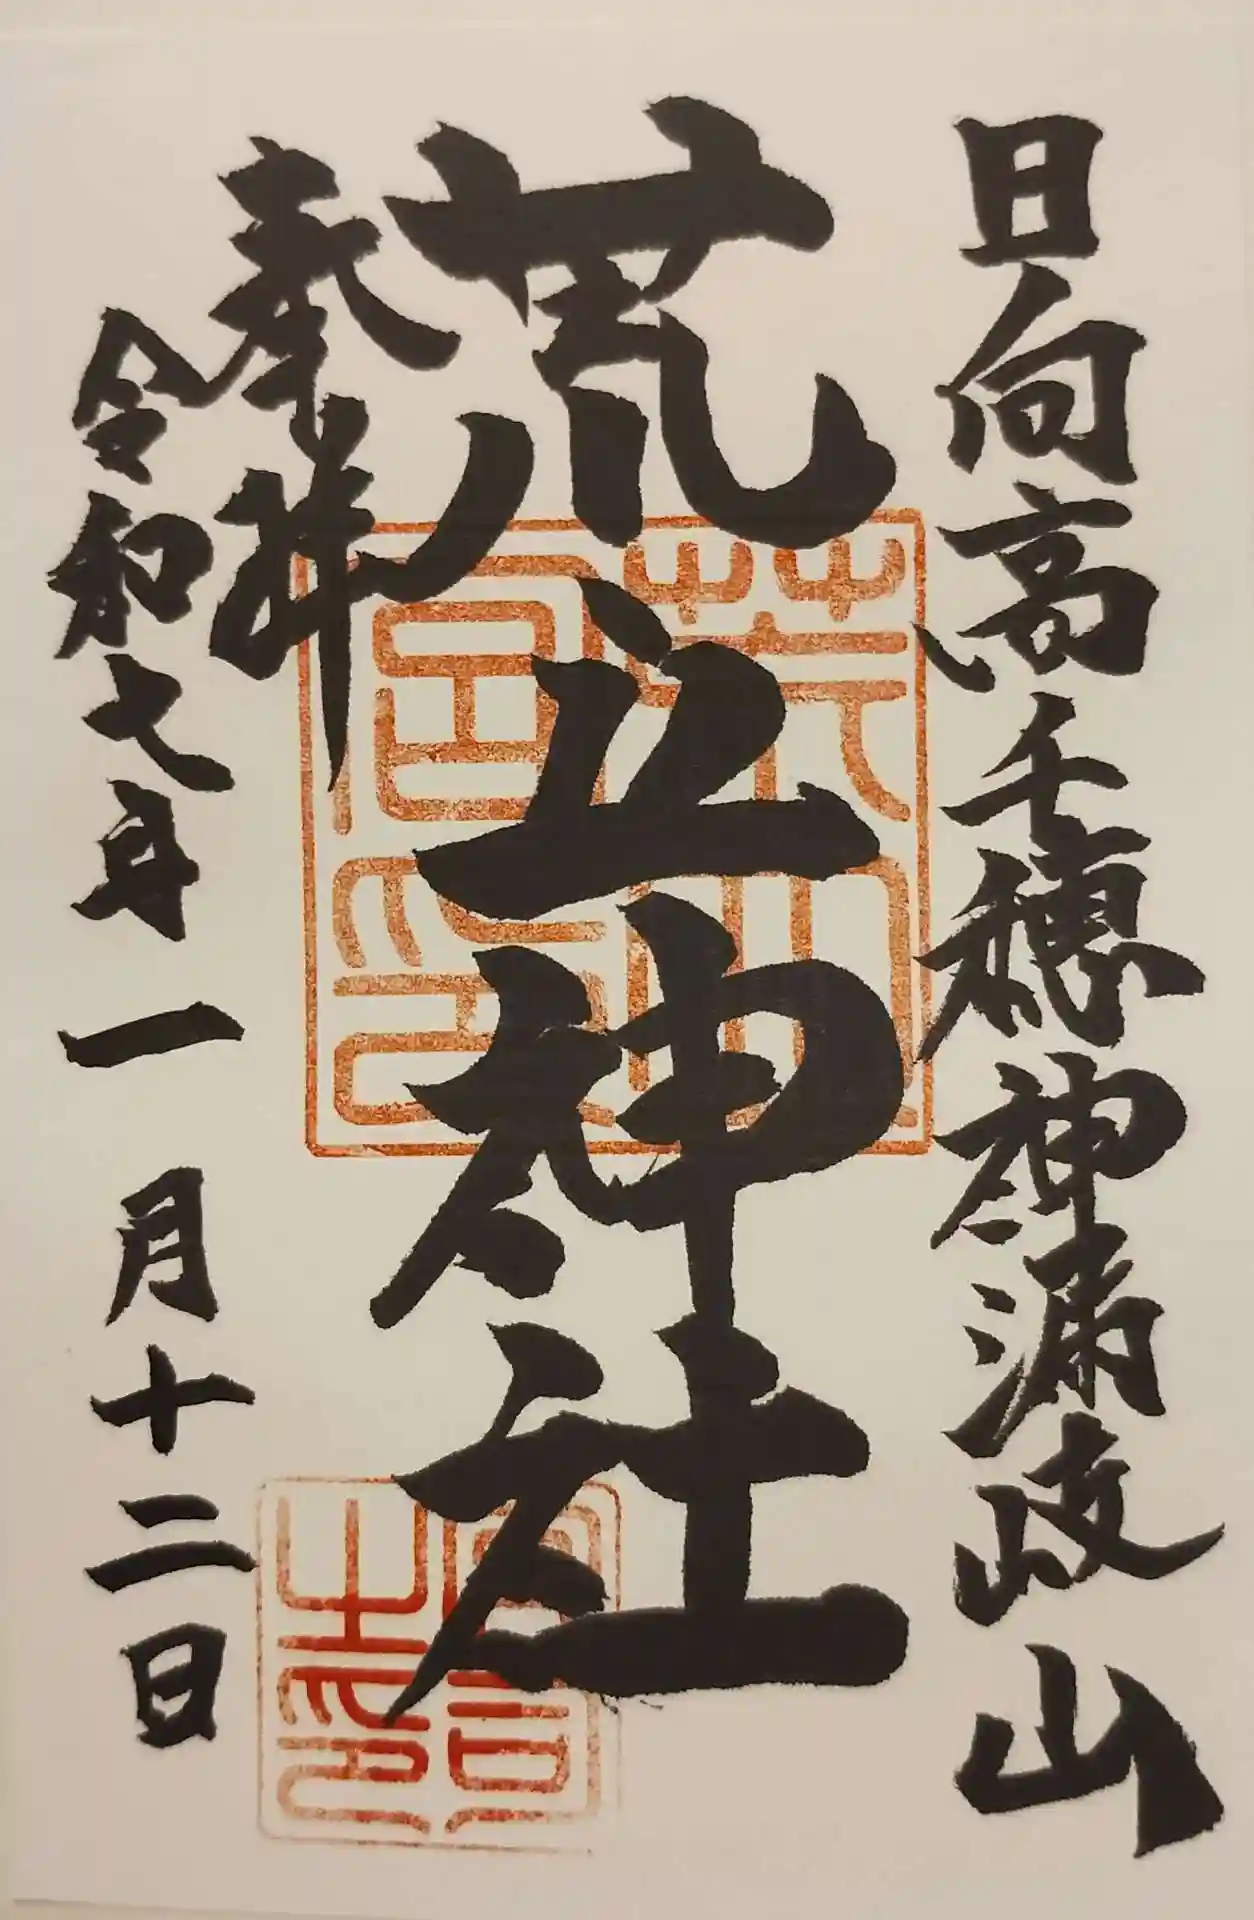 日向高千穂神漏岐山
荒立神社
奉拝
令和七年一月十二日